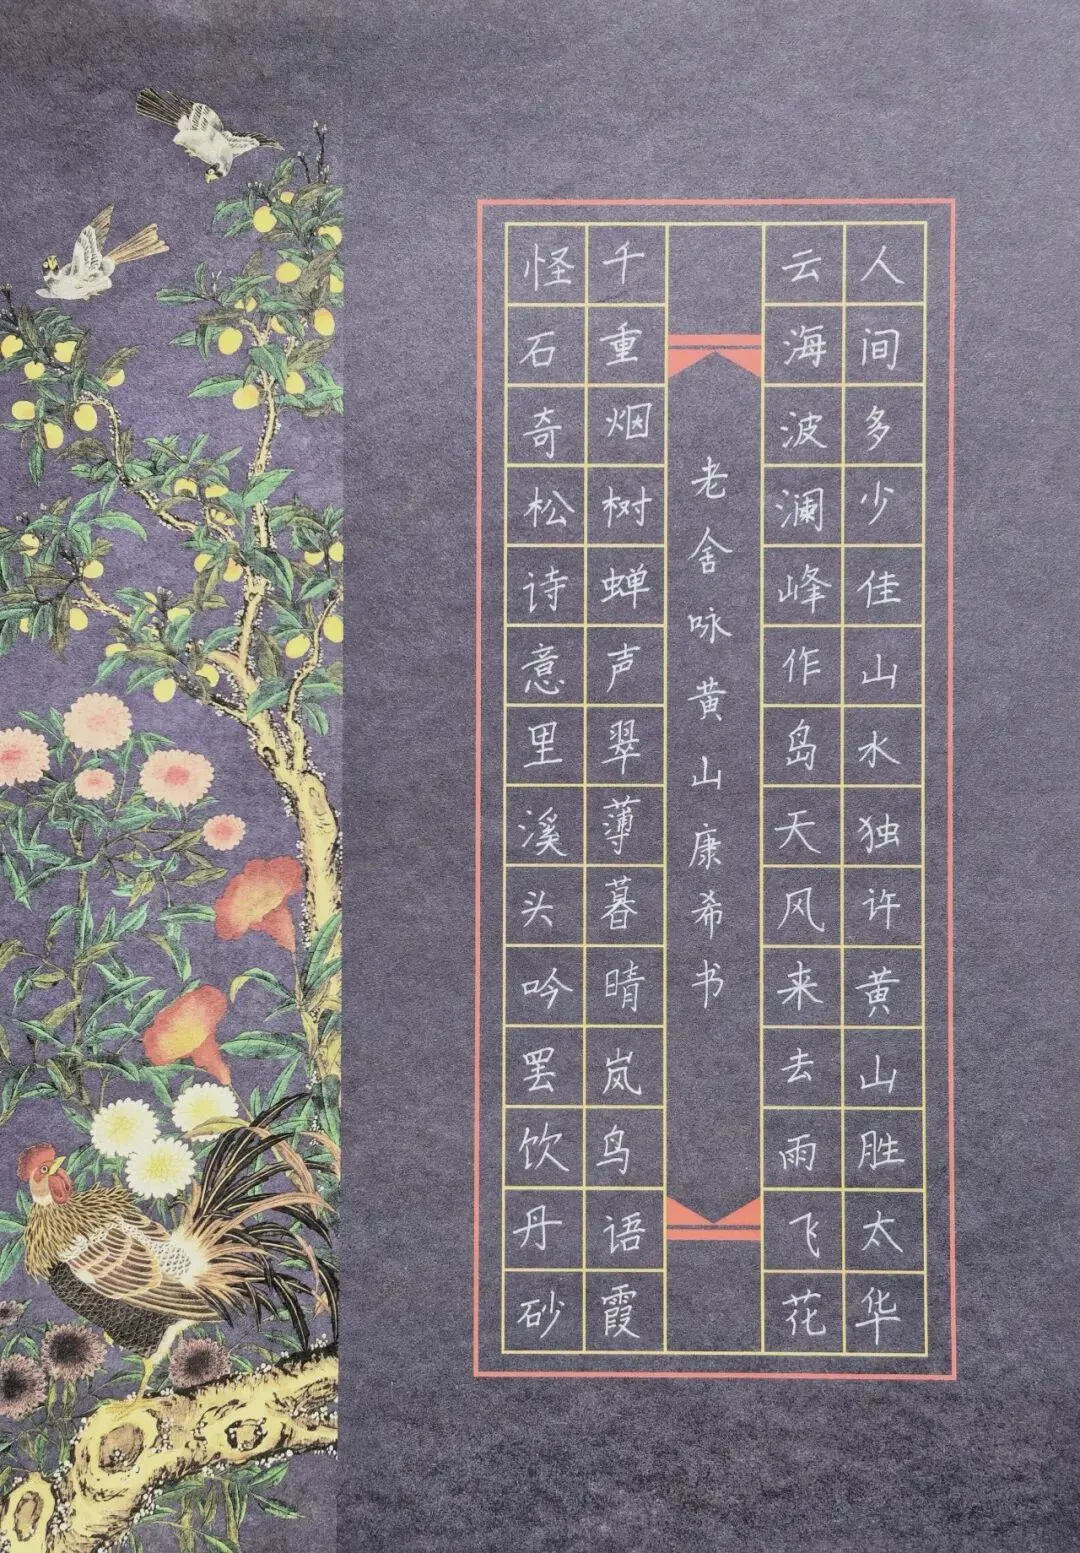 人间多少佳山水独许黄山胜太华
云海波澜峰作岛天风来去雨飞花
老舍咏黄山康希书
千重烟树蝉声翠薄暮晴岚鸟语霞
怪石奇松诗意里溪头吟罢饮丹砂